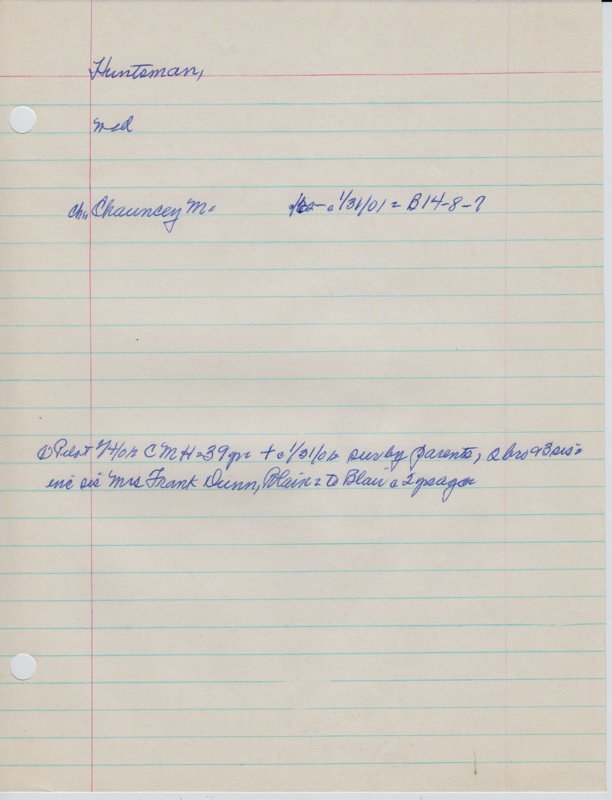 Huntsman,
md
ch,, Chauncey M. - c 1/31/01 = B14-8-7
① Pilot 2/4/01 = C M H = 39 yr = + c 1/31/01 = sur by parents, 2 bro & 3 sis =
inc sis Mrs Frank Dunn, Blair = to Blair c 2 yrs ago =